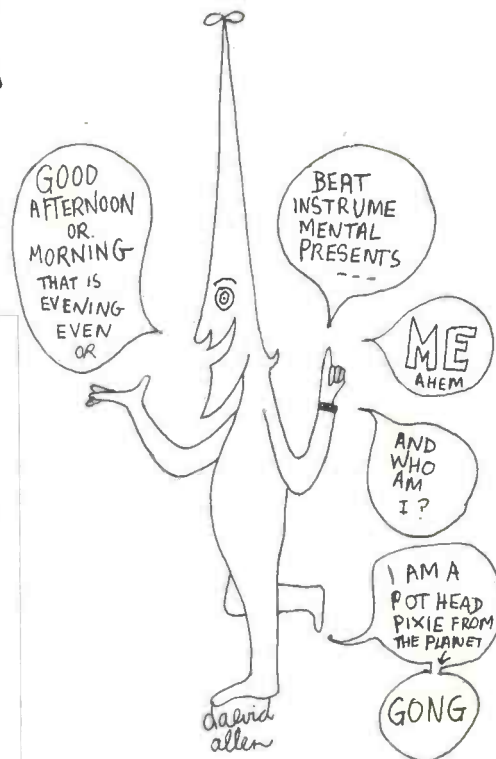 GOOD
AFTERNOON
OR.
MORNING
THAT IS
EVENING
EVEN
OR
BEAT
INSTRUME
MENTAL
PRESENTS
---
ME
AHEM
AND
WHO
AM
I?
I AM A
POT HEAD
PIXIE FROM
THE PLANET
GONG
daevid
allen